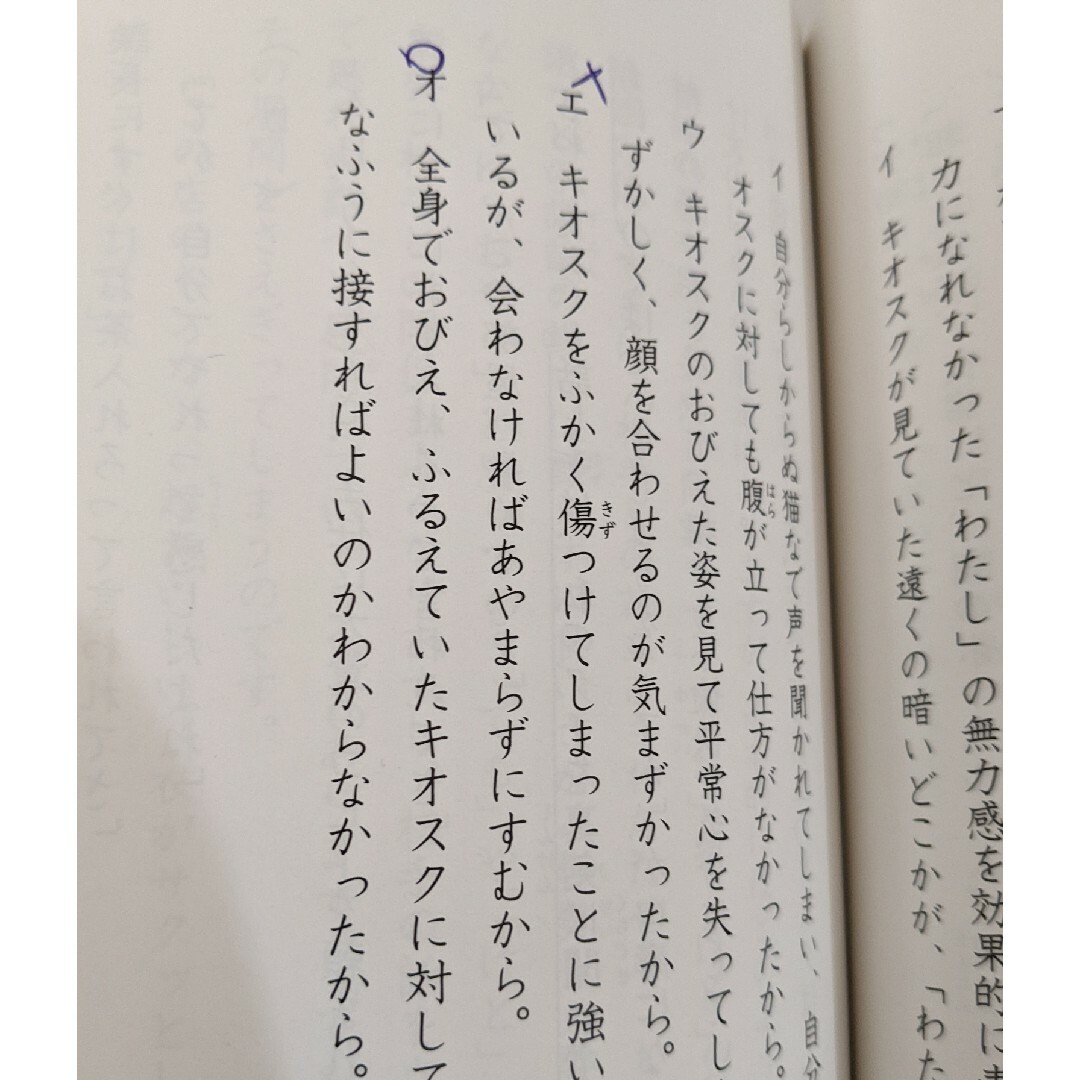 力になれなかった「わたし」の無力感を効果的に
イ キオスクが見ていた遠くの暗いどこかが、「わた
イ 自分らしからぬ猫なで声を聞かれてしまい、自分
オスクに対しても腹が立って仕方がなかったから。
ウ キオスクのおびえた姿を見て平常心を失ってし
ずかしく、顔を合わせるのが気まずかったから。
エ キオスクをふかく傷つけてしまったことに強い
いるが、会わなければあやまらずにすむから。
オ 全身でおびえ、ふるえていたキオスクに対して
なふうに接すればよいのかわからなかったから。